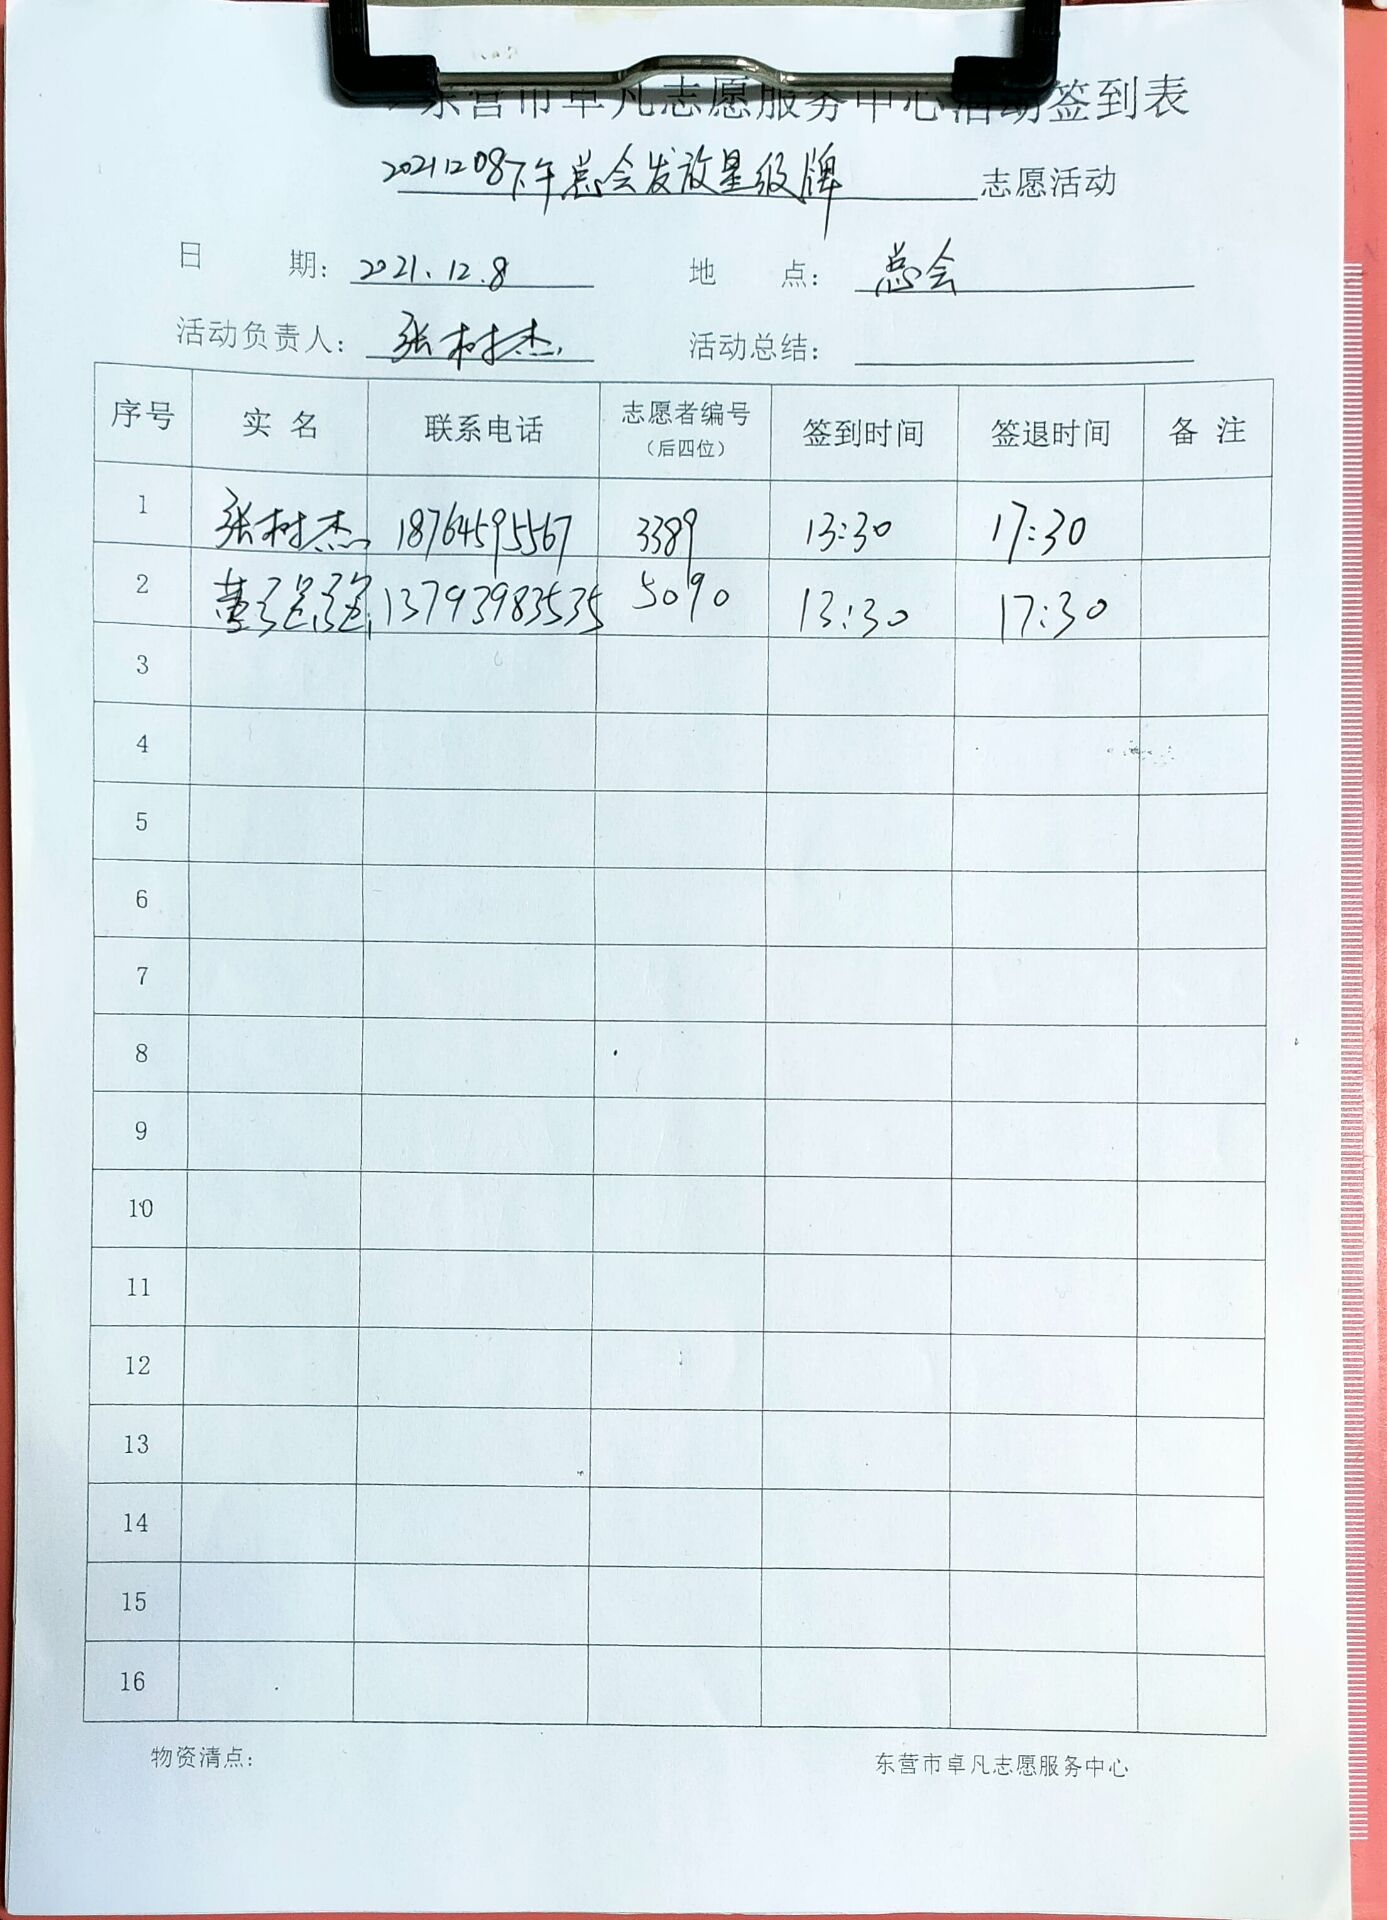 东营市卓凡志愿服务中心活动签到表
20211208下午总会发放星级牌 志愿活动
日 期： 2021.12.8 地 点： 总会
活动负责人： 张树杰 活动总结：
序号 实 名 联系电话 志愿者编号（后四位） 签到时间 签退时间 备 注
1 张树杰 18764595567 3389 13:30 17:30
2 13793983535 5090 13:30 17:30
3
4
5
6
7
8
9
10
11
12
13
14
15
16
物资清点： 东营市卓凡志愿服务中心